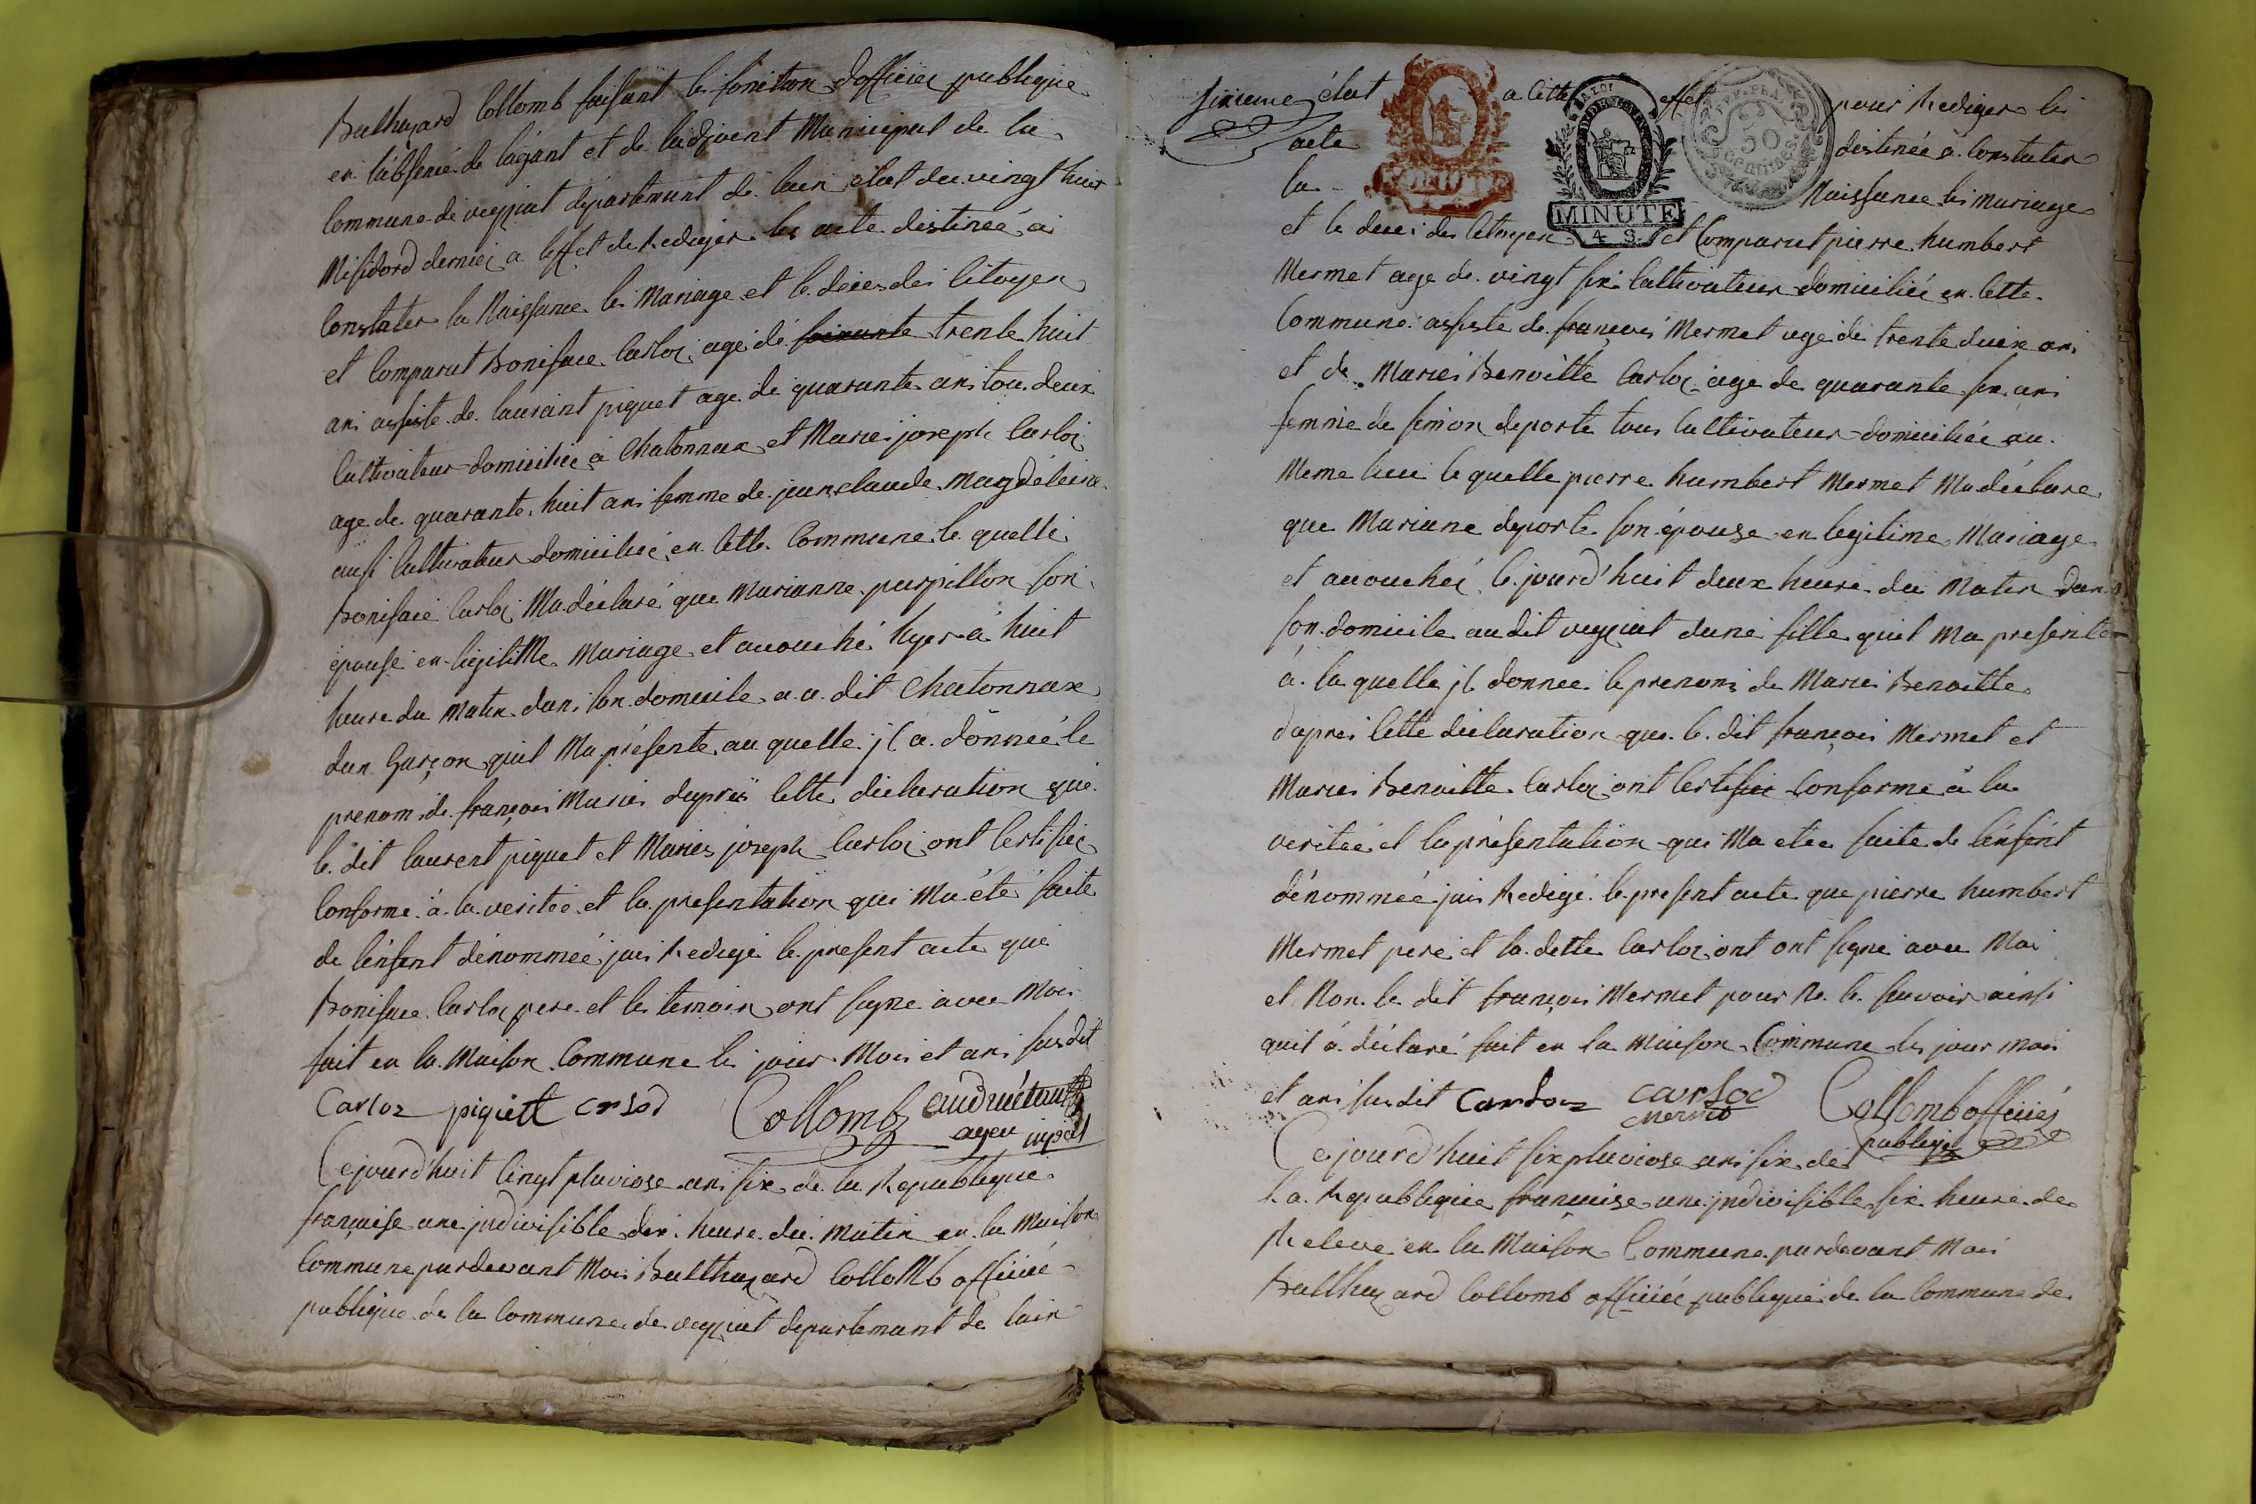 Balthazard Collomb faisant les fonction d'officier publique
en l'absence de l'agant et de ladjoient Municipal de la
Commune de veyziat departemant de lain elat du vingt huit
Mesidord dernier a leffet de Rediger les acte destinée à
Constater la Naissance les Mariage et le deces des Citoyen
et Comparut Boniface Carloz agé de soixante trente huit
ans assisté de laurant piquet age de quarante ans tou deux
Cultivateur domiciliée à Chatonnax et Marie joseph Carloz
age de quarante huit ans femme de jean claude Magdeleine
aussi Cultivateur domiciliée en Cette Commune le quelle
Boniface Carloz Ma déclaré que Marianne parpillon son
épouse en legitime Mariage et acouché hyer à huit
heure du Matin dans son domicile a u dit Chatonnax
dun Garçon quil Ma présente au quelle jl a donnée le
prenom de françois Marie dapres Cette déclaration que
le dit laurent piquet et Marie joseph Carloz ont Certifiez
Conforme à la veritée et la presentation qui Ma été faite
de lenfent dénommée jai Redigé le present acte que
Boniface Carloz pere et les temoin ont signé avec Moi
fait en la Maison Commune les jour Mois et ans susdit
Carloz piquett Collomb
agen
Cejourd'huit Cingt pluviose ans six de la Republique
française une jndivisible dix heure du Matin en la Maison
Commune pardevant Moi Balthazard Collomb officiée
publique de la Commune de veyziat departemant de lain
a Cette effet pour Rediger les
acte destinée à Constater
la Naissance les mariage
MINUTE
4 S.
50
centimes
et le deces des Citoyen et Comparut pierre humbert
Mermet age de vingt six Cultivateur domiciliée en Cette
Commune assiste de françois Mermet agé de trente deux ans
et de Marie Benoitte Carloz age de quarante six ans
femme de simon deporte tous Cultivateur domiciliée au
Meme lieu le quelle pierre humbert Mermet Ma déclare
que Mariane deporte son épouse en legitime Mariage
et acouchéé le jourd'huit deux heure du Matin dans
son domicile au dit veyziat dune fille quil Ma presente
à la quelle jl donnee le prenom de Marie Benoitte
dapres Cette déclaration que le dit françois Mermet et
Marie Benoitte Carloz ont Certifiée Conforme à la
veritée et la présentation qui Ma etee faite de lénfént
dénommée jai Redigé le present acte que pierre humbert
Mermet pere et la ditte Carloz ont ont signé avec Moi
et Non le dit françois Mermet pour Ne le savoir ainsi
quil à déclaré fait en la Maison Commune les jour mois
et ans susdit Carloz Carloz Collomb officiéé
publique
Cejourd'huit six pluviose ans six de
La Republique française une jndivisible six heure de
Relevé en la Maison Commune pardevant Moi
Balthazard Collomb officiée publique de la Commune de